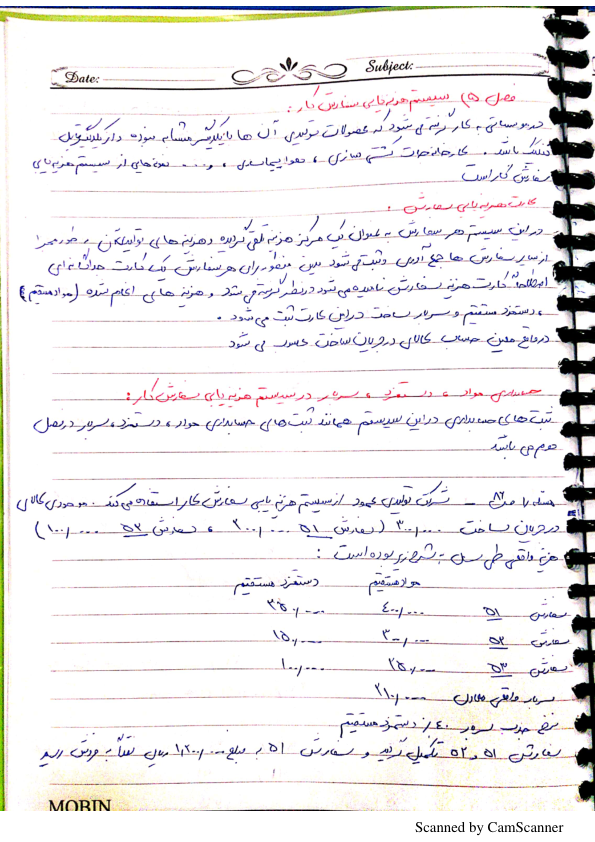 Date:
Subject:
فصل ۵) سیستم هزینه یابی سفارش کار:
در موسساتی به کار گرفته می شود که محصولات تولیدی آن ها با یکدیگر مشابه نبوده و از یکدیگر قابل
تفکیک باشد. کارخانجات کشتی سازی، هواپیماسازی، و ... نمونه هایی از سیستم هزینه یابی
سفارش کار است
کارت هزینه یابی سفارش:
در این سیستم هر سفارش به عنوان یک مرکز هزینه تلقی گردیده و هزینه های تولید آن به طور مجزا
از سایر سفارش ها جمع آوری و ثبت می شود بدین منظور برای هر سفارش یک کارت جداگانه ای
اصطلاحاً کارت هزینه سفارش نامیده می شود در نظر گرفته می شود و هزینه های انجام شده (مواد مستقیم)
، دستمزد مستقیم و سربار ساخت در این کارت ثبت می شود.
در واقع معین حساب کالای در جریان ساخت محسوب می شود
حسابداری مواد، دستمزد، سربار در سیستم هزینه یابی سفارش کار:
ثبت های حسابداری در این سیستم همانند ثبت های حسابداری مواد، دستمزد، سربار در فصل
دوم می باشد
۸۲ – شرکت تولیدی عمود از سیستم هزینه یابی سفارش کار استفاده می کند. موجودی کالای
در جریان ساخت ۳۰۰/۰۰۰ (سفارش ۵۱ ۲۰۰/۰۰۰، سفارش ۵۲ ۱۰۰/۰۰۰)
هزینه واقعی طی سال به شرح زیر بوده است:
مواد مستقیم دستمزد مستقیم
سفارش ۵۱ ۴۰۰/۰۰۰ ۳۵۰/۰۰۰
سفارش ۵۲ ۳۰۰/۰۰۰ ۱۵۰/۰۰۰
سفارش ۵۳ ۲۵۰/۰۰۰ ۱۰۰/۰۰۰
سربار واقعی معادل ۲۱۰/۰۰۰
نرخ جذب سربار ۴۰٪ دستمزد مستقیم
سفارش ۵۱ و ۵۲ تکمیل گردید و سفارش ۵۱ به مبلغ ۱/۲۰۰/۰۰۰ ریال نقداً به فروش رسید
MOBIN
Scanned by CamScanner